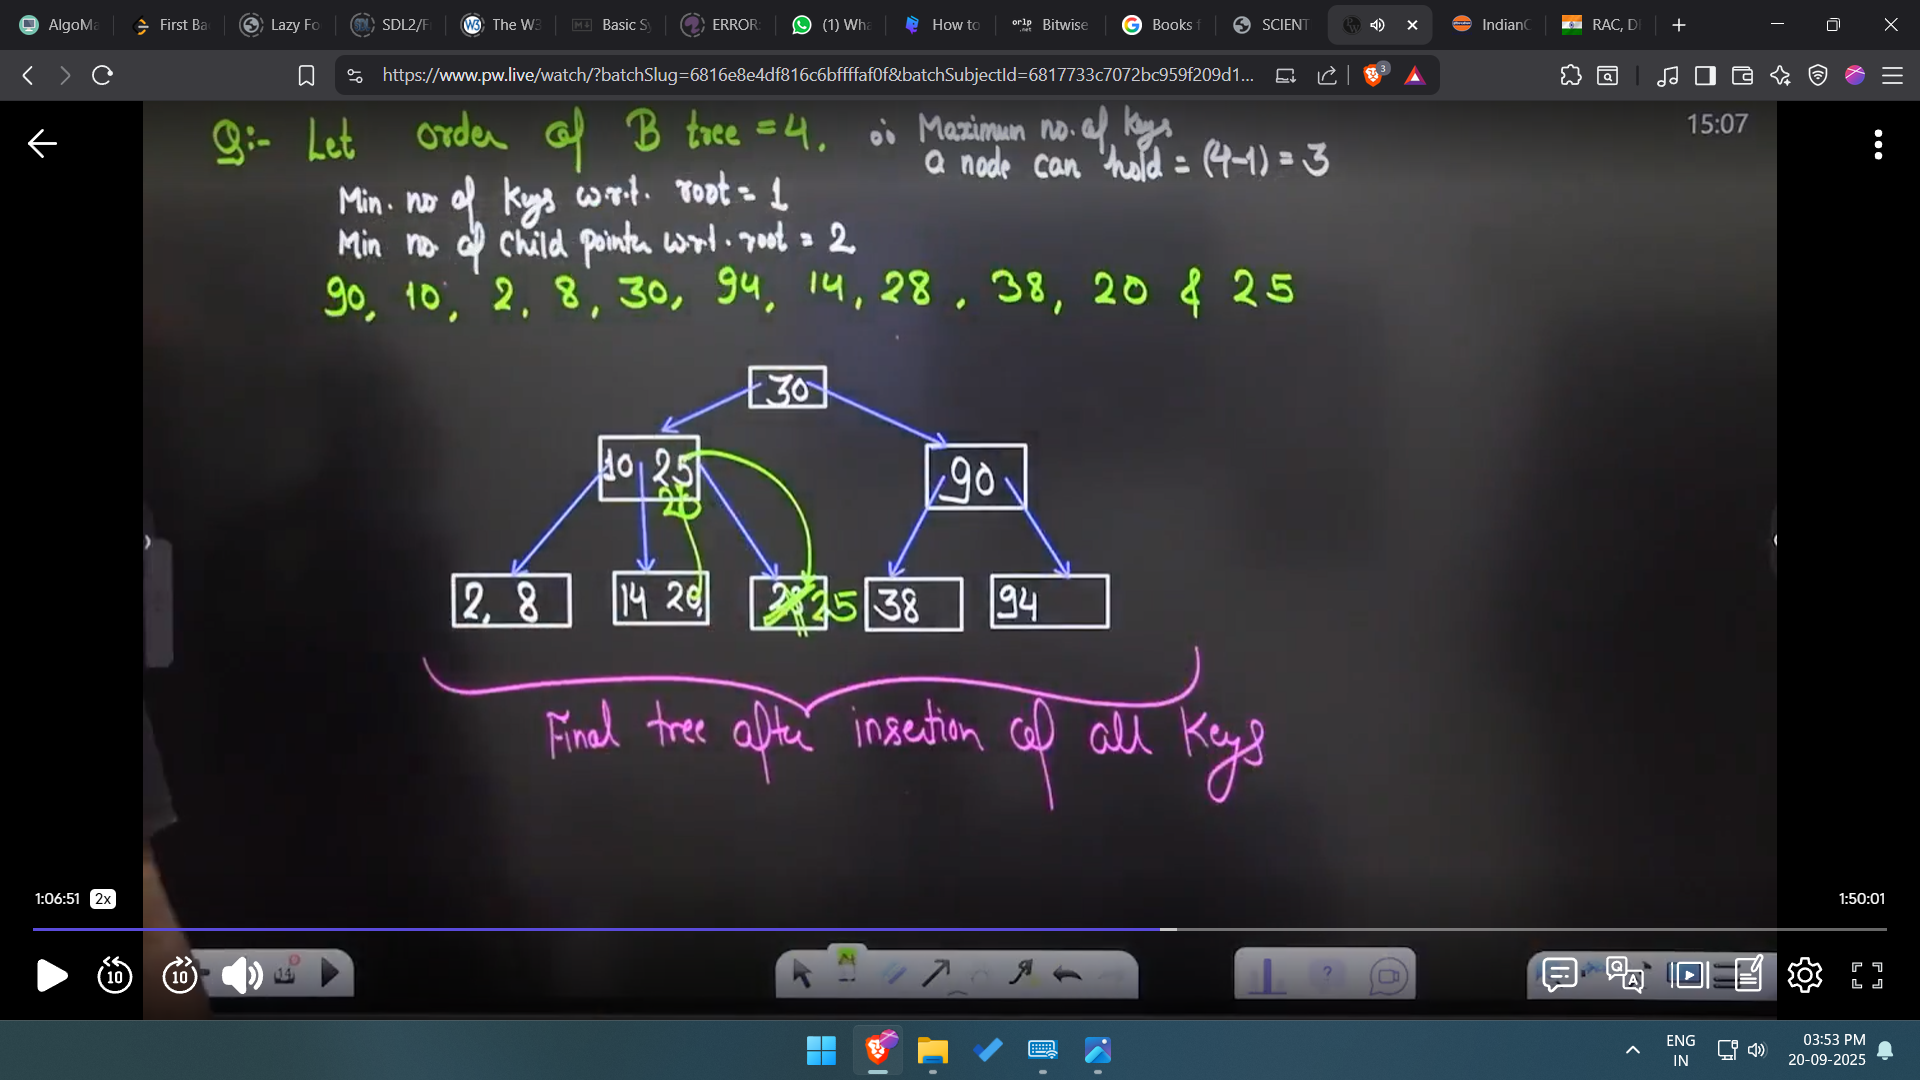 AlgoMa
First Ba
Lazy Fo
SDL2/F
The W3
Basic Sy
ERROR:
(1) Wha
How to
Bitwise
Books f
SCIENT
IndianC
RAC, D
https://www.pw.live/watch/?batchSlug=6816e8e4df816c6bffffaf0f&batchSubjectId=6817733c7072bc959f209d1...
3
15:07
Q:- Let order of B tree = 4. ∴ Maximum no. of Keys
a node can hold = (4-1) = 3
Min. no of Keys w.r.t. root = 1
Min no of Child pointer w.r.t. root = 2
90, 10, 2, 8, 30, 94, 14, 28, 38, 20 & 25
30
10 25
90
20
2, 8
14 20
28 25
38
94
Final tree after insertion of all Keys
1:06:51 2x
1:50:01
10
10
14
ENG
IN
03:53 PM
20-09-2025